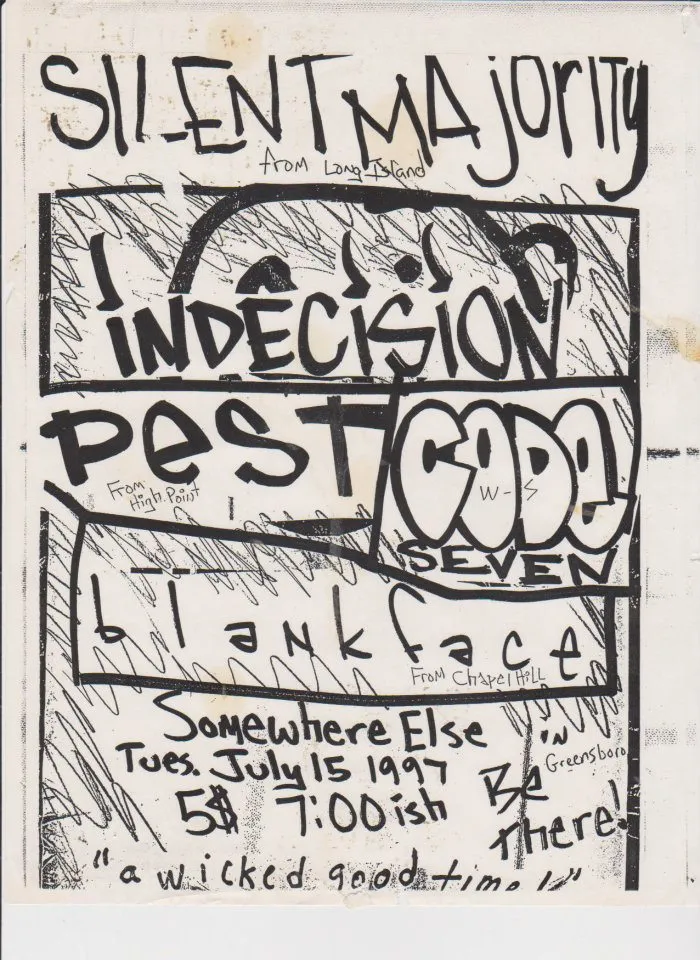 SILENT MAjoriTy
from Long Island
INDECISION
PesT
From
High Point
CODe
W-S
SEVEN
blankface
From Chapel Hill
Somewhere Else
in
Greensboro
Tues. July 15 1997
5$ 7:00ish
Be
There!
"a wicked good time!"